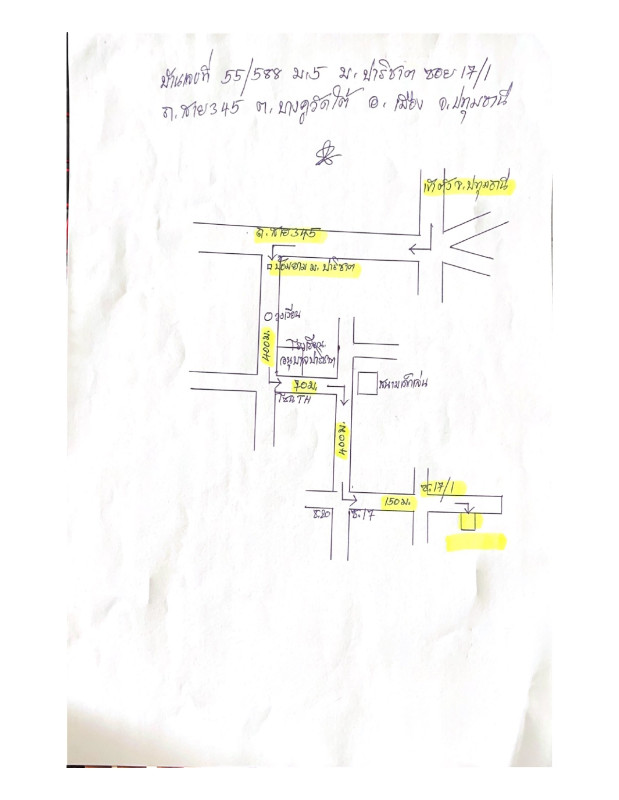 บ้านเลขที่ 55/588 ม.5 ม.ปาริชาต ซอย 17/1
ถ.สาย 345 ต.บางคูวัดใต้ อ.เมือง จ.ปทุมธานี
เข้าตัว จ.ปทุมธานี
ถ.สาย 345
ป้อมยาม ม.ปาริชาต
วงเวียน
400 ม.
โรงเรียน
อนุบาลปาริชาต
70 ม.
โซน TH
สนามเด็กเล่น
400 ม.
ซ.17/1
150 ม.
ซ.20
ซ.17